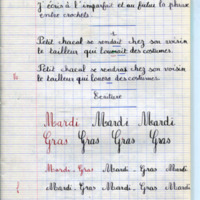 j'écris à l'imparfait et au futur la phrase
entre crochets
Petit chacal se rendait chez son voisin
le tailleur qui tournait des costumes.
Petit chacal se rendra chez son voisin
le tailleur qui des costumes.
Ecriture
Mardi Mardi Mardi
Gras Gras Gras Gras
Mardi - Gras Mardi - Gras Mardi
Mardi - Gras Mardi - Gras Mardi